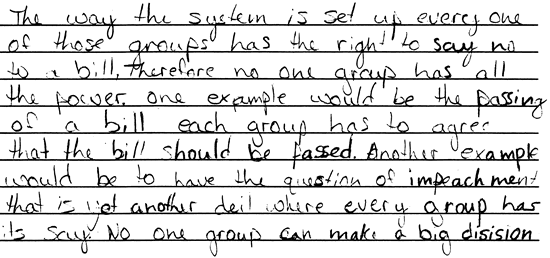 The way the system is set up every one
of those groups has the right to say no
to a bill, therefore no one group has all
the power. one example would be the passing
of a bill each group has to agree
that the bill should be passed. Another example
would be to have the question of impeachment
that is yet another deil where every group has
its say. No one group can make a big disision